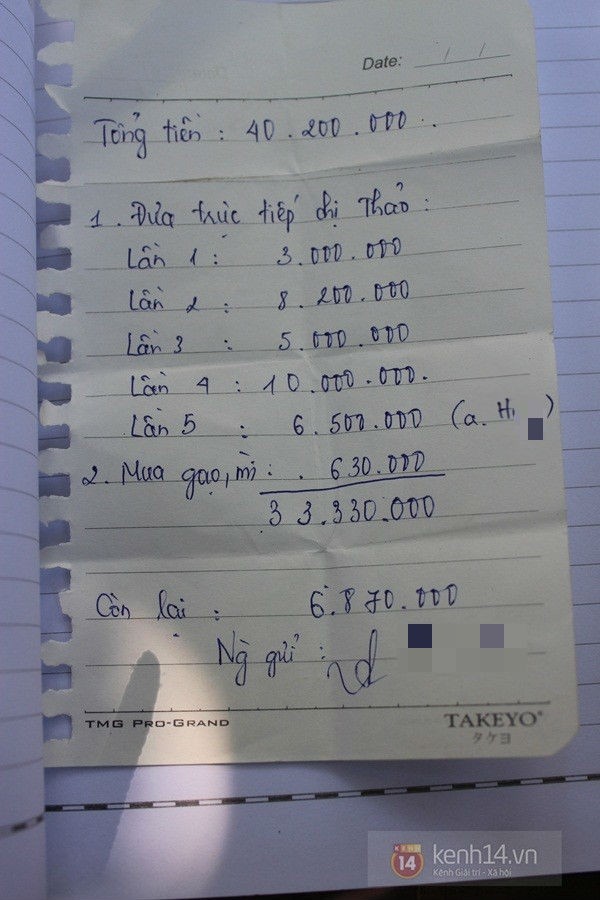 Date: / /
Tổng tiền : 40.200.000.
1. Đưa trực tiếp chị Thảo :
Lần 1 : 3.000.000
Lần 2 : 8.200.000
Lần 3 : 5.000.000
Lần 4 : 10.000.000.
Lần 5 : 6.500.000 (a. H )
2. Mua gạo, mì : . 630.000
33.330.000
Còn lại : 6.870.000
Ng gửi :
TMG PRO-GRAND
TAKEYO®
タケヨ
KENH 14
kenh14.vn
Kênh Giải trí - Xã hội